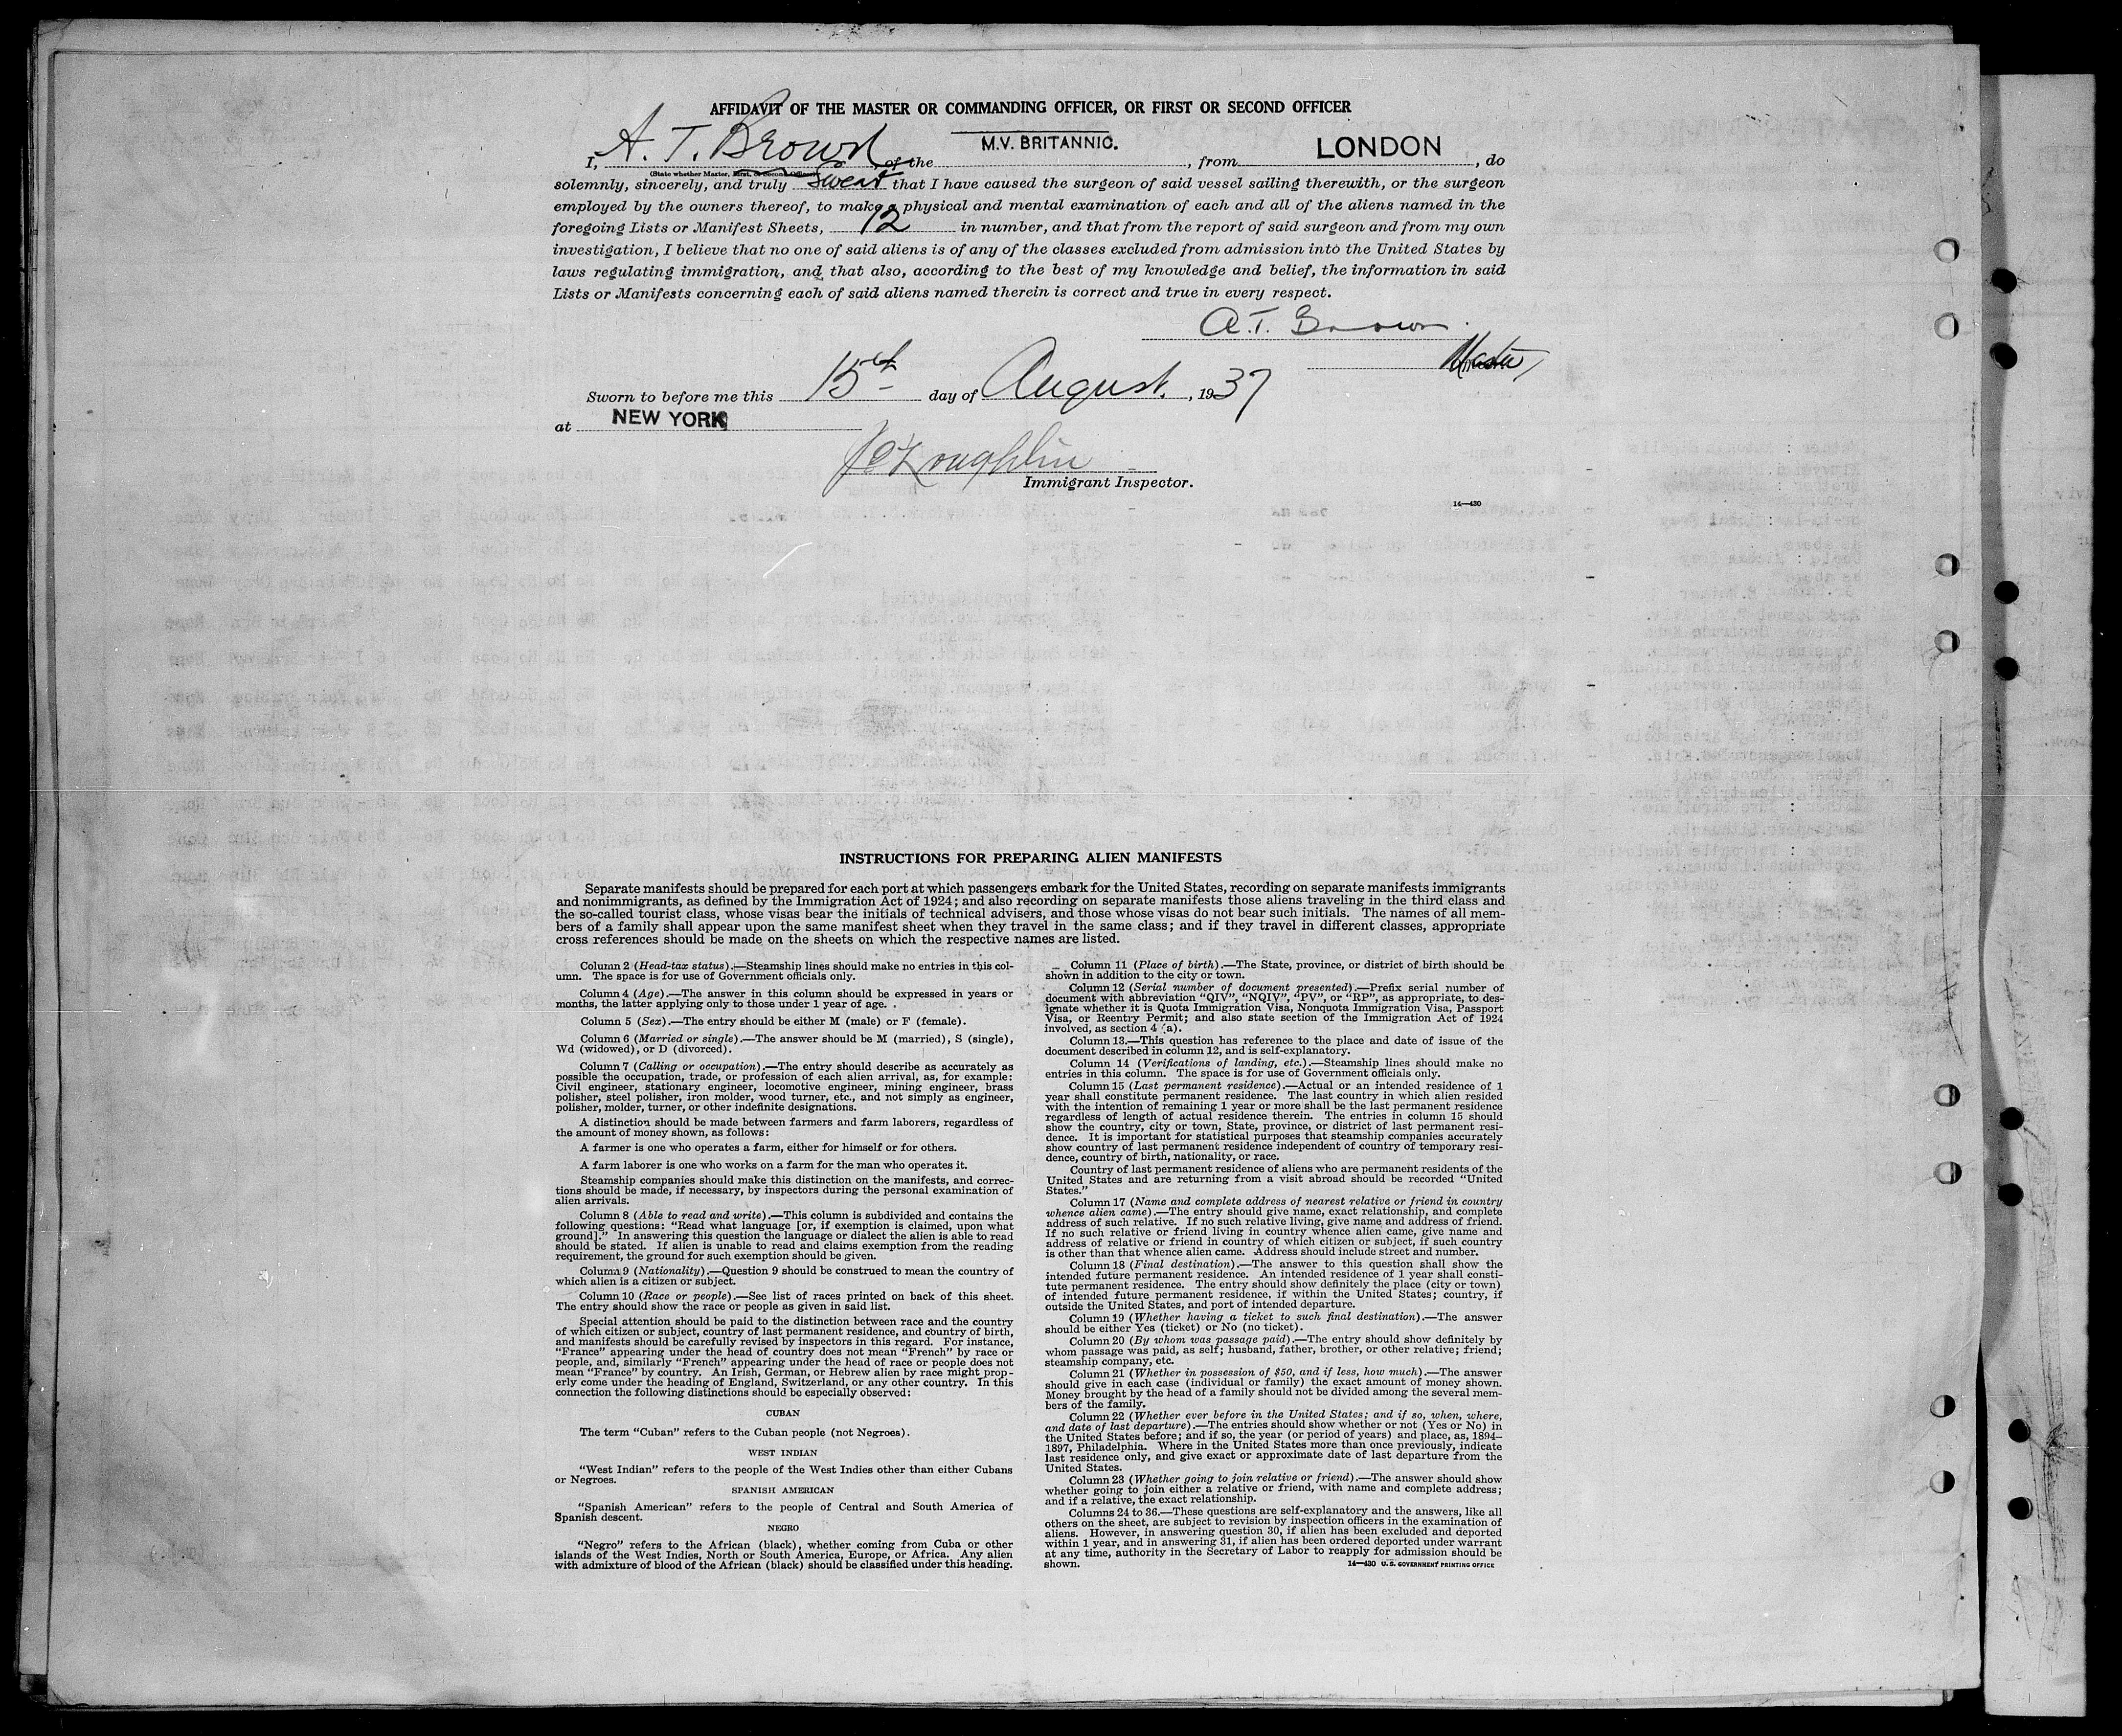 AFFIDAVIT OF THE MASTER OR COMMANDING OFFICER, OR FIRST OR SECOND OFFICER
I, A. T. Brown of the M.V. BRITANNIC. , from LONDON , do
(State whether Master, First, or Second Officer)
solemnly, sincerely, and truly Swear that I have caused the surgeon of said vessel sailing therewith, or the surgeon
employed by the owners thereof, to make a physical and mental examination of each and all of the aliens named in the
foregoing Lists or Manifest Sheets, 12 in number, and that from the report of said surgeon and from my own
investigation, I believe that no one of said aliens is of any of the classes excluded from admission into the United States by
laws regulating immigration, and that also, according to the best of my knowledge and belief, the information in said
Lists or Manifests concerning each of said aliens named therein is correct and true in every respect.
A.T. Brown.
Master
Sworn to before me this 15th day of August. , 1937
at NEW YORK
Immigrant Inspector.
14—430
INSTRUCTIONS FOR PREPARING ALIEN MANIFESTS
Separate manifests should be prepared for each port at which passengers embark for the United States, recording on separate manifests immigrants
and nonimmigrants, as defined by the Immigration Act of 1924; and also recording on separate manifests those aliens traveling in the third class and
the so-called tourist class, whose visas bear the initials of technical advisers, and those whose visas do not bear such initials. The names of all mem-
bers of a family shall appear upon the same manifest sheet when they travel in the same class; and if they travel in different classes, appropriate
cross references should be made on the sheets on which the respective names are listed.
Column 2 (Head-tax status).—Steamship lines should make no entries in this col-
umn. The space is for use of Government officials only.
Column 4 (Age).—The answer in this column should be expressed in years or
months, the latter applying only to those under 1 year of age.
Column 5 (Sex).—The entry should be either M (male) or F (female).
Column 6 (Married or single).—The answer should be M (married), S (single),
Wd (widowed), or D (divorced).
Column 7 (Calling or occupation).—The entry should describe as accurately as
possible the occupation, trade, or profession of each alien arrival, as, for example:
Civil engineer, stationary engineer, locomotive engineer, mining engineer, brass
polisher, steel polisher, iron molder, wood turner, etc., and not simply as engineer,
polisher, molder, turner, or other indefinite designations.
A distinction should be made between farmers and farm laborers, regardless of
the amount of money shown, as follows:
A farmer is one who operates a farm, either for himself or for others.
A farm laborer is one who works on a farm for the man who operates it.
Steamship companies should make this distinction on the manifests, and correc-
tions should be made, if necessary, by inspectors during the personal examination of
alien arrivals.
Column 8 (Able to read and write).—This column is subdivided and contains the
following questions: “Read what language [or, if exemption is claimed, upon what
ground].” In answering this question the language or dialect the alien is able to read
should be stated. If alien is unable to read and claims exemption from the reading
requirement, the ground for such exemption should be given.
Column 9 (Nationality).—Question 9 should be construed to mean the country of
which alien is a citizen or subject.
Column 10 (Race or people).—See list of races printed on back of this sheet.
The entry should show the race or people as given in said list.
Special attention should be paid to the distinction between race and the country
of which citizen or subject, country of last permanent residence, and country of birth,
and manifests should be carefully revised by inspectors in this regard. For instance,
“France” appearing under the head of country does not mean “French” by race or
people, and, similarly “French” appearing under the head of race or people does not
mean “France” by country. An Irish, German, or Hebrew alien by race might prop-
erly come under the heading of England, Switzerland, or any other country. In this
connection the following distinctions should be especially observed:
CUBAN
The term “Cuban” refers to the Cuban people (not Negroes).
WEST INDIAN
“West Indian” refers to the people of the West Indies other than either Cubans
or Negroes.
SPANISH AMERICAN
“Spanish American” refers to the people of Central and South America of
Spanish descent.
NEGRO
“Negro” refers to the African (black), whether coming from Cuba or other
islands of the West Indies, North or South America, Europe, or Africa. Any alien
with admixture of blood of the African (black) should be classified under this heading.
Column 11 (Place of birth).—The State, province, or district of birth should be
shown in addition to the city or town.
Column 12 (Serial number of document presented).—Prefix serial number of
document with abbreviation “QIV”, “NQIV”, “PV”, or “RP”, as appropriate, to des-
ignate whether it is Quota Immigration Visa, Nonquota Immigration Visa, Passport
Visa, or Reentry Permit; and also state section of the Immigration Act of 1924
involved, as section 4 (a).
Column 13.—This question has reference to the place and date of issue of the
document described in column 12, and is self-explanatory.
Column 14 (Verifications of landing, etc.).—Steamship lines should make no
entries in this column. The space is for use of Government officials only.
Column 15 (Last permanent residence).—Actual or an intended residence of 1
year shall constitute permanent residence. The last country in which alien resided
with the intention of remaining 1 year or more shall be the last permanent residence
regardless of length of actual residence therein. The entries in column 15 should
show the country, city or town, State, province, or district of last permanent resi-
dence. It is important for statistical purposes that steamship companies accurately
show country of last permanent residence independent of country of temporary resi-
dence, country of birth, nationality, or race.
Country of last permanent residence of aliens who are permanent residents of the
United States and are returning from a visit abroad should be recorded “United
States.”
Column 17 (Name and complete address of nearest relative or friend in country
whence alien came).—The entry should give name, exact relationship, and complete
address of such relative. If no such relative living, give name and address of friend.
If no such relative or friend living in country whence alien came, give name and
address of relative or friend in country of which citizen or subject, if such country
is other than that whence alien came. Address should include street and number.
Column 18 (Final destination).—The answer to this question shall show the
intended future permanent residence. An intended residence of 1 year shall consti-
tute permanent residence. The entry should show definitely the place (city or town)
of intended future permanent residence, if within the United States; country, if
outside the United States, and port of intended departure.
Column 19 (Whether having a ticket to such final destination).—The answer
should be either Yes (ticket) or No (no ticket).
Column 20 (By whom was passage paid).—The entry should show definitely by
whom passage was paid, as self; husband, father, brother, or other relative; friend;
steamship company, etc.
Column 21 (Whether in possession of $50, and if less, how much).—The answer
should give in each case (individual or family) the exact amount of money shown.
Money brought by the head of a family should not be divided among the several mem-
bers of the family.
Column 22 (Whether ever before in the United States; and if so, when, where,
and date of last departure).—The entries should show whether or not (Yes or No) in
the United States before; and if so, the year (or period of years) and place, as, 1894–
1897, Philadelphia. Where in the United States more than once previously, indicate
last residence only, and give exact or approximate date of last departure from the
United States.
Column 23 (Whether going to join relative or friend).—The answer should show
whether going to join either a relative or friend, with name and complete address;
and if a relative, the exact relationship.
Columns 24 to 36.—These questions are self-explanatory and the answers, like all
others on the sheet, are subject to revision by inspection officers in the examination of
aliens. However, in answering question 30, if alien has been excluded and deported
within 1 year, and in answering 31, if alien has been ordered deported under warrant
at any time, authority in the Secretary of Labor to reapply for admission should be
shown. 14—430 U.S. GOVERNMENT PRINTING OFFICE